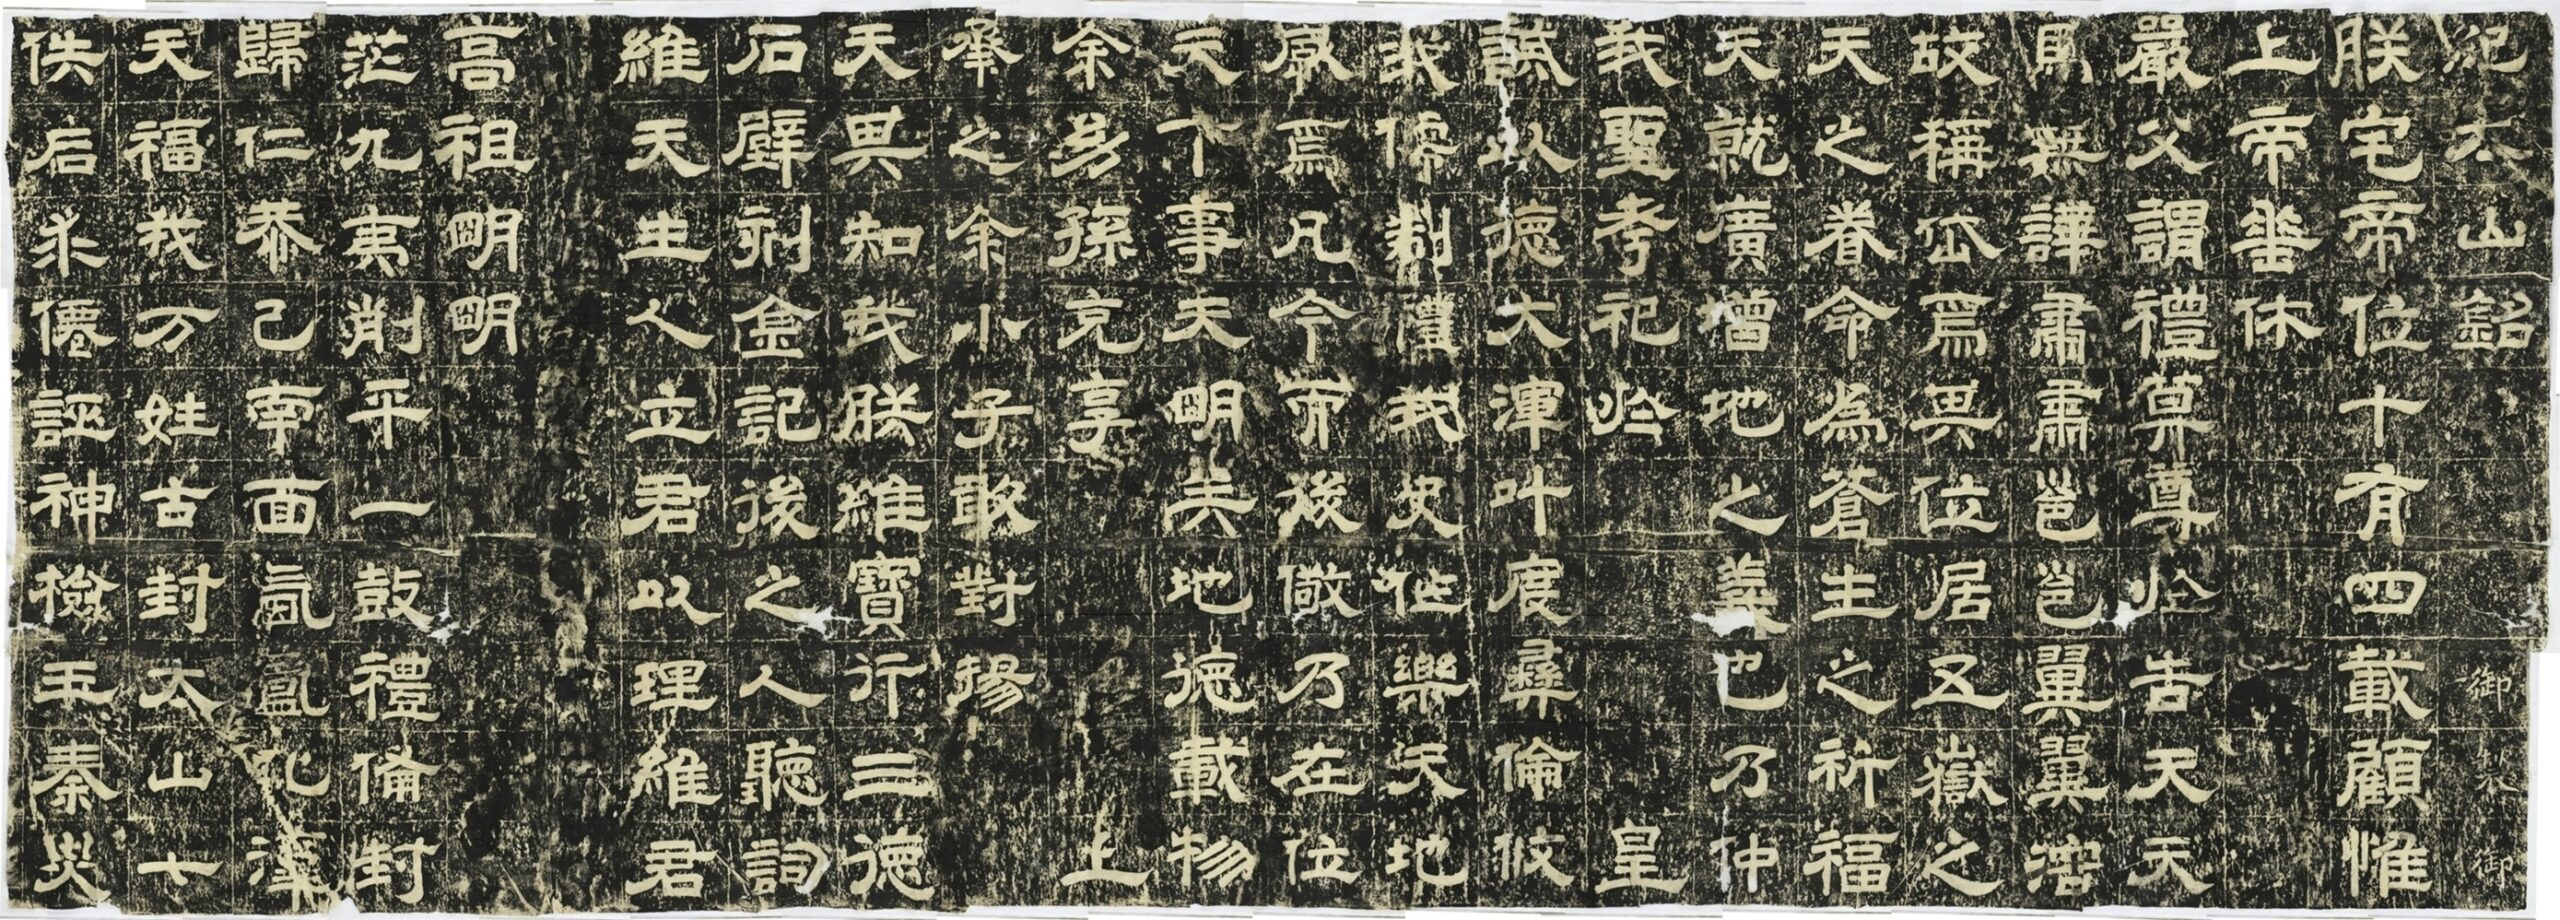 紀太山銘 御製 御
朕宅帝位十有四載顧惟
上帝垂休
嚴父謂禮尊尊於告天天
員無譁肅肅邕邕翼翼溶
故稱岱爲異位居五嶽之
天之眷命為蒼生之祈福
天就廣增地之義也乃仲
我聖考祀於 皇
誠以德大渾叶度彝倫攸
我儒制禮我史作樂天地
咸爲凡今而後儆乃在位
天下事天明矣地德載物
余幼孫克享 上
承之余小子敢對揚
天畏知我朕維寶行三德
石壁刻金記後之人聽詞
維天生人立君以理維君
高祖明明
茫九夷削平一鼓禮備封
歸仁恭己南面氤氳化淳
天福我万姓古封太山七
佚后求僊誣神檢玉秦災